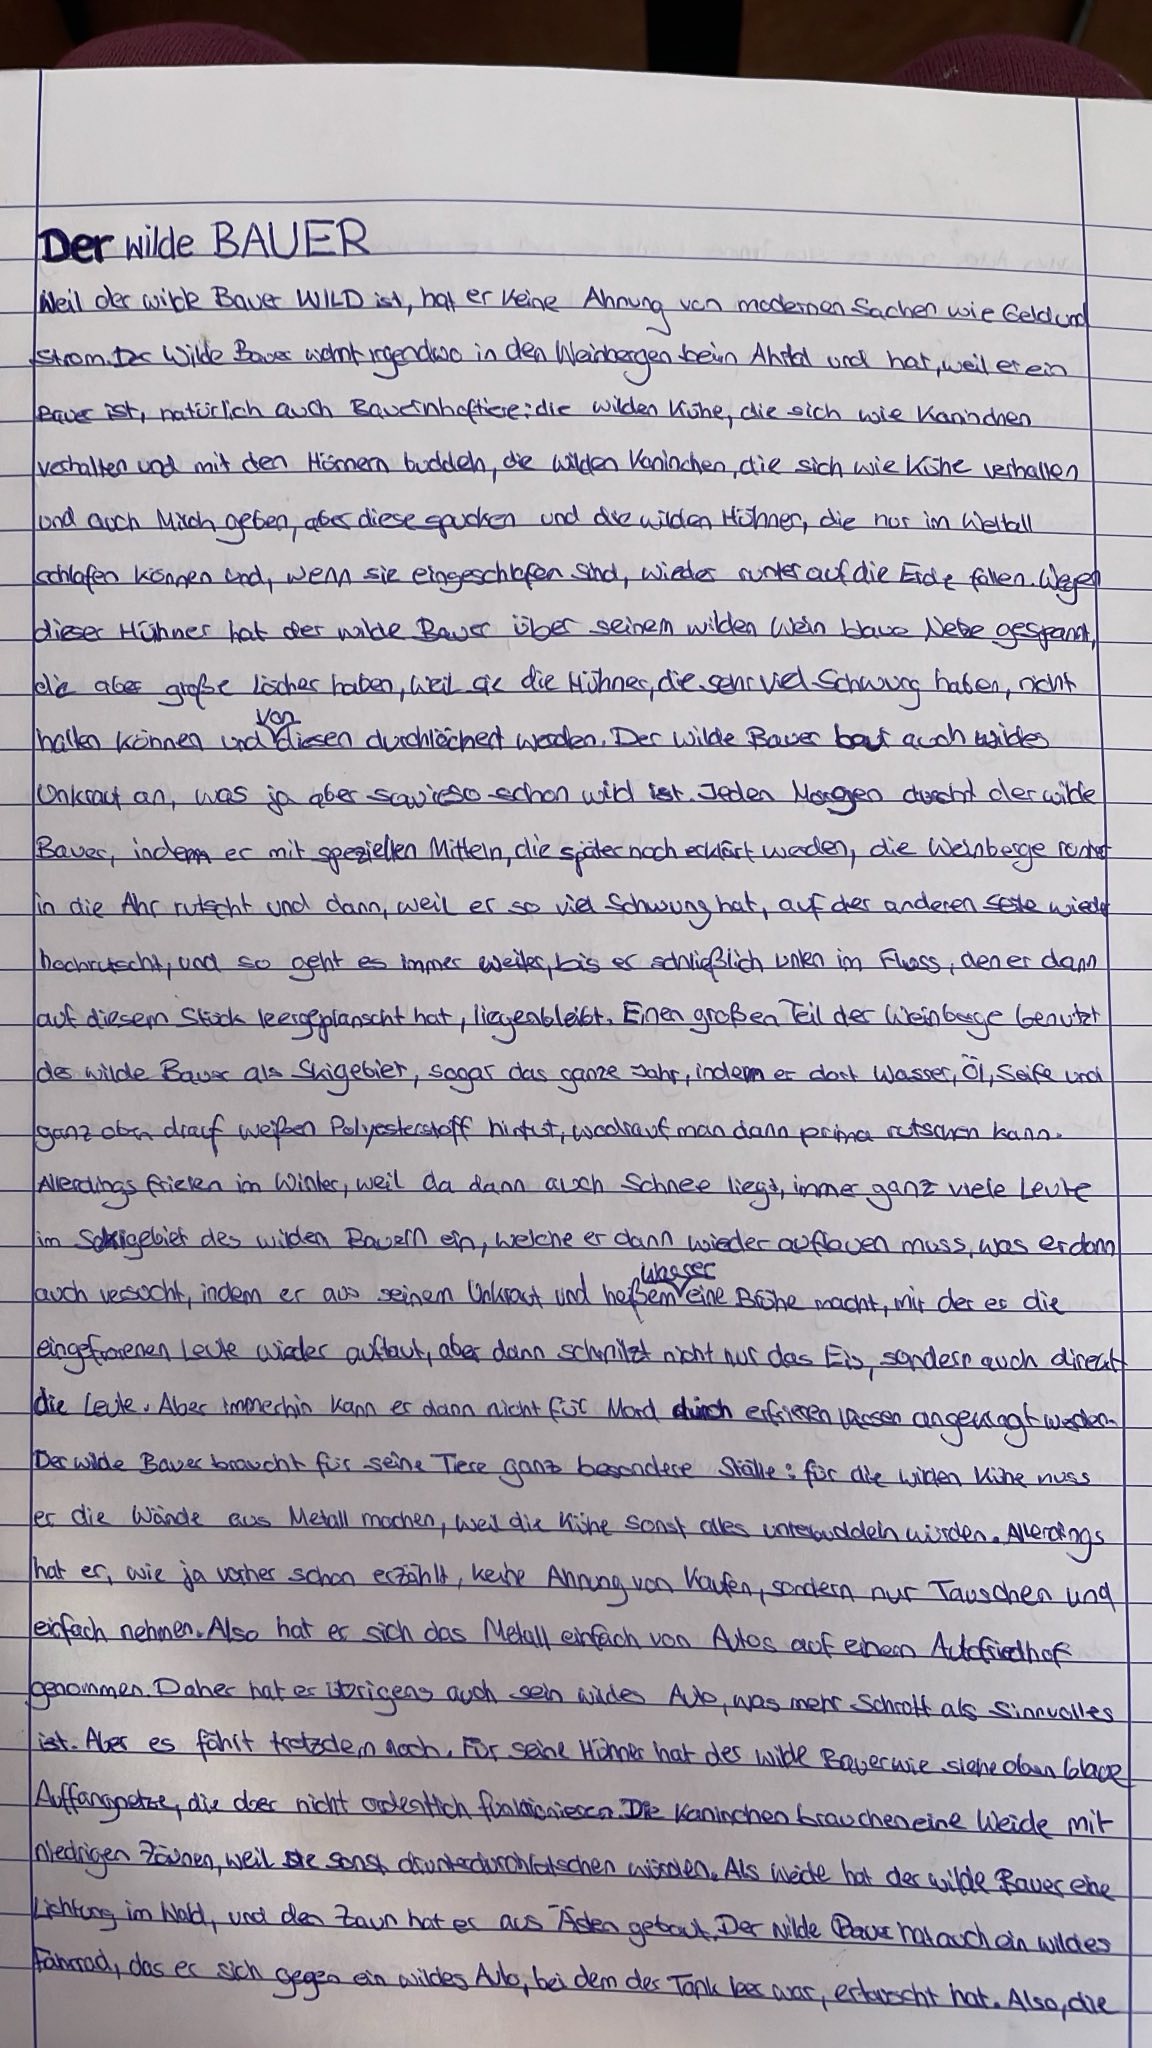 Der wilde BAUER
Weil der wilde Bauer WILD ist, hat er keine Ahnung von modernen Sachen wie Geld und
Strom. Der Wilde Bauer wohnt irgendwo in den Weinbergen beim Ahrtal und hat, weil er ein
Bauer ist, natürlich auch Bauernhoftiere: die wilden Kühe, die sich wie Kaninchen
verhalten und mit den Hörnern buddeln, die wilden Kaninchen, die sich wie Kühe verhalten
und auch Milch geben, aber diese spucken und die wilden Hühner, die nur im Weltall
schlafen können und, wenn sie eingeschlafen sind, wieder runter auf die Erde fallen. Wegen
dieser Hühner hat der wilde Bauer über seinem wilden Wein blaue Netze gespannt,
die aber große Löcher haben, weil sie die Hühner, die sehr viel Schwung haben, nicht
halten können und von diesen durchlöchert werden. Der wilde Bauer baut auch wildes
Unkraut an, was ja aber sowieso schon wild ist. Jeden Morgen duscht der wilde
Bauer, indem er mit speziellen Mitteln, die später noch erklärt werden, die Weinberge runter
in die Ahr rutscht und dann, weil er so viel Schwung hat, auf der anderen Seite wieder
hochrutscht, und so geht es immer weiter, bis er schließlich unten im Fluss, den er dann
auf diesem Stück leergeplanscht hat, liegenbleibt. Einen großen Teil der Weinberge benutzt
der wilde Bauer als Skigebiet, sogar das ganze Jahr, indem er dort Wasser, Öl, Seife und
ganz oben drauf weißen Polyesterstoff hintut, woodrauf man dann prima rutschen kann.
Allerdings frieren im Winter, weil da dann auch Schnee liegt, immer ganz viele Leute
im Skigebiet des wilden Bauern ein, welche er dann wieder auftauen muss, was er dann
auch versucht, indem er aus seinem Unkraut und heißem Wasser eine Brühe macht, mit der er die
eingefrorenen Leute wieder auftaut, aber dann schmilzt nicht nur das Eis, sondern auch direkt
die Leute. Aber immerhin kann er dann nicht für Mord durch erfrieren lassen angeklagt werden.
Der wilde Bauer braucht für seine Tiere ganz besondere Ställe: für die wilden Kühe muss
er die Wände aus Metall machen, weil die Kühe sonst alles unterbuddeln würden. Allerdings
hat er, wie ja vorher schon erzählt, keine Ahnung von Kaufen, sondern nur Tauschen und
einfach nehmen. Also hat er sich das Metall einfach von Autos auf einem Autofriedhof
genommen. Daher hat er übrigens auch sein wildes Auto, was mehr Schrott als Sinnvolles
ist. Aber es fährt trotzdem noch. Für seine Hühner hat der wilde Bauer wie siehe oben blaue
Auffangnetze, die aber nicht ordentlich funktionieren. Die Kaninchen brauchen eine Weide mit
niedrigen Zäunen, weil sie sonst drunterdurchlatschen würden. Als Weide hat der wilde Bauer eine
Lichtung im Wald, und den Zaun hat er aus Ästen gebaut. Der wilde Bauer hat auch ein wildes
Fahrrad, das er sich gegen ein wildes Auto, bei dem der Tank leer war, ertauscht hat. Also, die